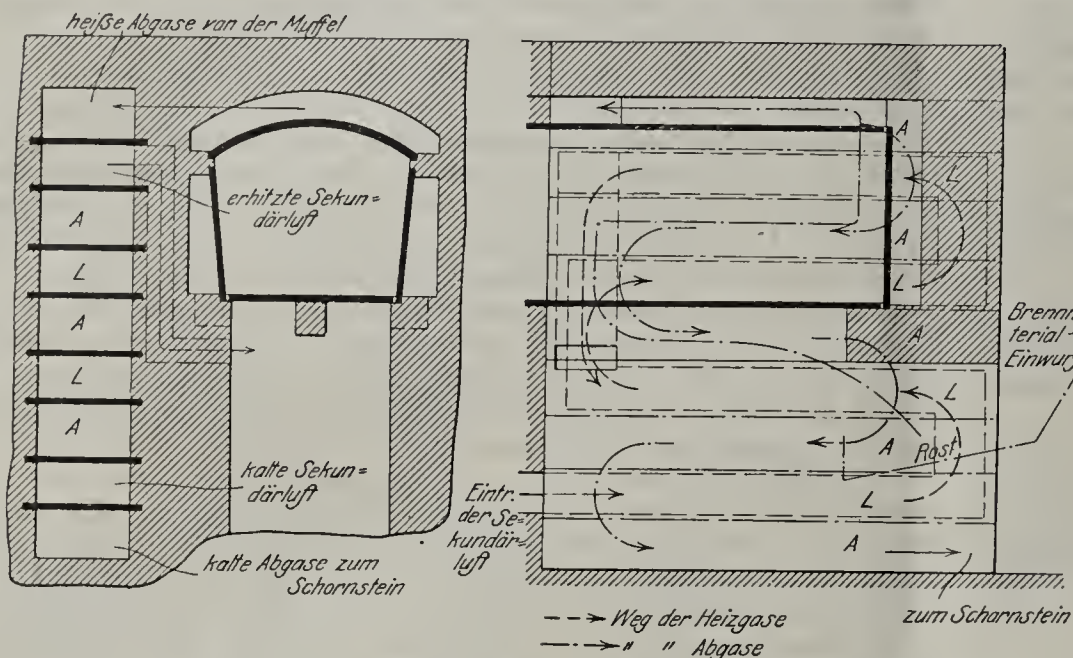 heiße Abgase von der Muffel
erhitzte Sekun=
därluft
A
L
A
L
A
kalte Sekun=
därluft
kalte Abgase zum
Schornstein
A
L
A
L
A
Brennm
terial-
Einwurf
L
A
Rost
L
Eintr.
der Se=
kundär=
luft
A
zum Schornstein
Weg der Heizgase
" " Abgase